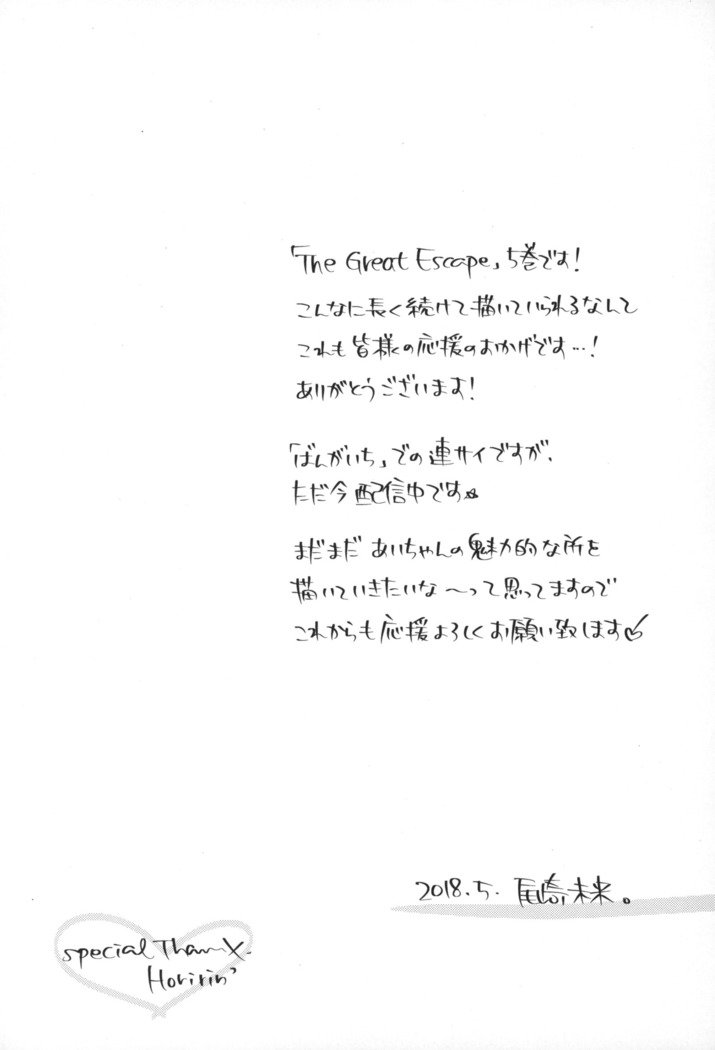 「The Great Escape」5巻です!
こんなに長く続けて描いていられるなんて
これも皆様の応援のおかげです…!
ありがとうございます!
「ばんがいち」での連サイですが、
ただ今配信中です☆
まだまだあいちゃんの魅力的な所を
描いていきたいな〜って思ってますので
これからも応援よろしくお願い致します♡
2018.5. 尾崎未来。
special Thanx.
Horirin'